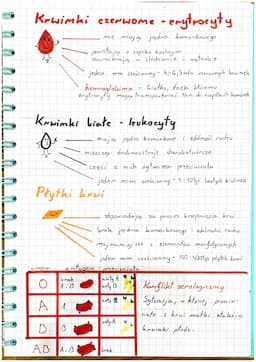 Krwinki czerwone - erytrocyty
nie mają jądra komórkowego
powstają w szpiku kostnym
obumierają w śledzionie i wątrobie
jeden mm sześcienny - 4-5,5 mln czerwonych krwinek
hemoglobina - białko, dzięki któremu
erytrocyty mogą transportować tlen do wszystkich komórek
Krwinki białe - leukocyty
mają jądro komórkowe i zdolność ruchu
niszczą drobnoustroje chorobotwórcze
część z nich wytwarza przeciwciała
jeden mm sześcienny - 4-10 tys. białych krwinek
Płytki krwi
odpowiadają za proces krzepnięcia krwi
brak jądra komórkowego i zdolności ruchu
najmniejsze z elementów morfotycznych
jeden mm sześcienny - 150-400 tys. płytek krwi
grupa antygen przeciwciała
O brak
A A
B B
AB A i B brak
Konflikt serologiczny
Sytuacja, w której przeciw-
ciała z krwi matki atakują
krwinki płodu.